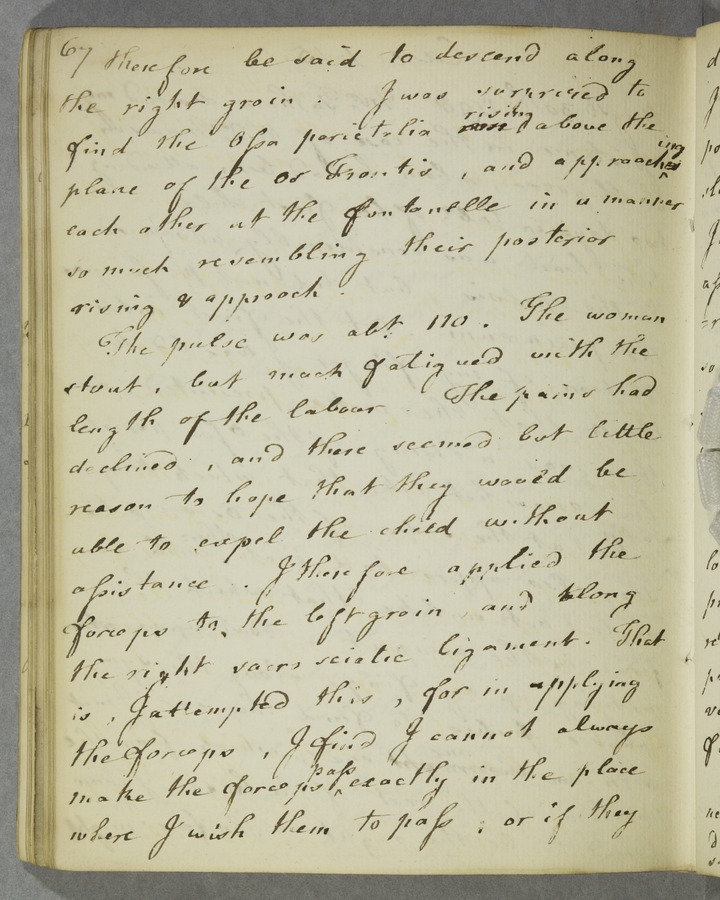 67 therefore be said to descend along
the right groin. I was surprised to
find the Ossa parietalia rising above the
plane of the os Frontis, and approaching
each other at the fontanelle in a manner
so much resembling their posterior
rising & approach.
The pulse was abt 110. The woman
stout, but much fatigued with the
length of the labour. The pains had
declined, and there seemed but little
reason to hope that they would be
able to expel the child without
assistance. I therefore applied the
forceps to the left groin and along
the right sacro sciatic ligament. That
is, I attempted this, for in applying
the forceps, I find I cannot always
make the forceps pass exactly in the place
where I wish them to pass, or if they